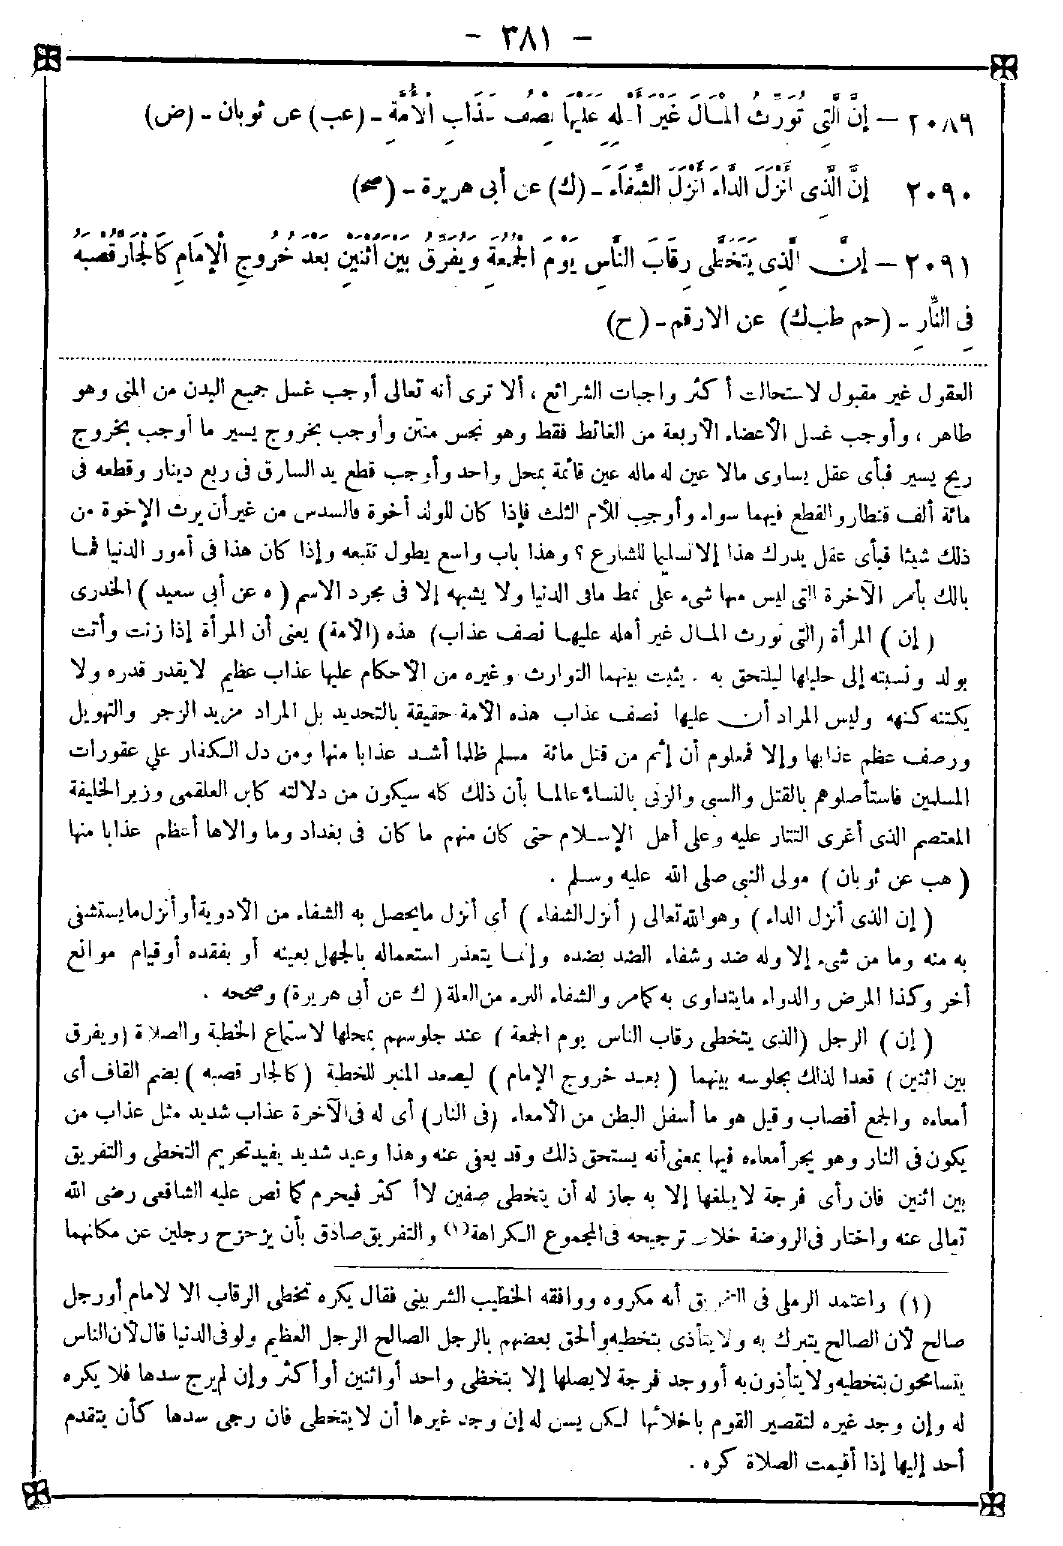 - ٣٨١ -
٢٠٨٩ – إِنَّ الَّتِي تُوَرِّثُ الْمَالَ غَيْرَ أَهْلِهِ عَلَيْهَا نِصْفُ عَذَابِ الْأُمَّةِ - (عب) عن ثوبان - (ض)
٢٠٩٠ إِنَّ الَّذِي أَنْزَلَ الدَّاءَ أَنْزَلَ الشِّفَاءَ - (ك) عن أبى هريرة - (صح)
٢٠٩١ – إِنَّ الَّذِي يَتَخَطَّى رِقَابَ النَّاسِ يَوْمَ الْجُمُعَةِ وَيُفَرِّقُ بَيْنَ اثْنَيْنِ بَعْدَ خُرُوجِ الْإِمَامِ كَالْجَارِّ قُصْبَهُ
فِي النَّارِ - (حم طب ك) عن الارقم - (ح)
العقول غير مقبول لاستحالت أكثر واجبات الشرائع ، ألا ترى أنه تعالى أوجب غسل جميع البدن من المنى وهو
طاهر ، وأوجب غسل الأعضاء الأربعة من الغائط فقط وهو نجس منتن وأوجب بخروج يسير ما أوجب بخروج
ريح يسير فبأى عقل يساوى مالا عين له ماله عين قائمة بمحل واحد وأوجب قطع يد السارق فى ربع دينار وقطعه فى
مائة ألف قنطار والقطع فيهما سواء وأوجب للأم الثلث فإذا كان للولد أخوة فالسدس من غير أن يرث الإخوة من
ذلك شيئا فبأى عقل يدرك هذا إلا تسليما للشارع ؟ وهذا باب واسع يطول تتبعه وإذا كان هذا فى أمور الدنيا فما
بالك بأمر الآخرة التى ليس منها شىء على نمط مافى الدنيا ولا يشبهه إلا فى مجرد الاسم ( ه عن أبى سعيد ) الخدرى
( إن ) المرأة (التى تورث المال غير أهله عليها نصف عذاب) هذه (الامة) يعنى أن المرأة إذا زنت وأتت
بولد ونسبته إلى حليلها ليلتحق به . يثبت بينهما التوارث وغيره من الاحكام عليها عذاب عظيم لا يقدر قدره ولا
يكتنه كنهه وليس المراد أن عليها نصف عذاب هذه الأمة حقيقة بالتحديد بل المراد مزيد الزجر والتهويل
ووصف عظم عذابها وإلا فمعلوم أن إثم من قتل مائة مسلم ظلما أشد عذابا منها ومن دل الكفار على عقورات
المسلمين فاستأصلوهم بالقتل والسبى والزنى بالنساء عالما بأن ذلك كله سيكون من دلالته كابن العلقمى وزير الخليفة
المعتصم الذى أغرى التتار عليه وعلى أهل الإسلام حتى كان منهم ما كان فى بغداد وما والاها أعظم عذابا منها
( هب عن ثوبان ) مولى النبى صلى الله عليه وسلم .
( إن الذى أنزل الداء ) وهو الله تعالى ( أنزل الشفاء ) أى أنزل مايحصل به الشفاء من الأدوية أو أنزل مايستشفى
به منه وما من شىء إلا وله ضد وشفاء الضد بضده وإنما يتعذر استعماله بالجهل بعينه أو بفقده أو قيام موانع
أخر وكذا المرض والدواء مايتداوى به كامر والشفاء البرء من العلة ( ك عن أبى هريرة) وصححه .
( إن ) الرجل (الذى يتخطى رقاب الناس يوم الجمعة ) عند جلوسهم بمحلها لاستماع الخطبة والصلاة (ويفرق
بين اثنين ) قعدا لذلك بجلوسه بينهما ( بعد خروج الإمام ) ليصعد المنبر للخطبة ( كالجار قصبه ) بضم القاف أى
أمعاءه والجمع أقصاب وقيل هو ما أسفل البطن من الأمعاء (فى النار) أى له فى الآخرة عذاب شديد مثل عذاب من
يكون فى النار وهو يجر أمعاءه فيها بمعنى أنه يستحق ذلك وقد يعفى عنه وهذا وعيد شديد يفيد تحريم التخطى والتفريق
بين اثنين فان رأى فرجة لايبلغها إلا به جاز له أن يتخطى صفين لا أكثر فيحرم كما نص عليه الشافعى رضى الله
تعالى عنه واختار فى الروضة خلاف ترجيحه فى المجموع الكراهة (١) والتفريق صادق بأن يزحزح رجلين عن مكانهما
(١) واعتمد الرملى فى أنه مكروه ووافقه الخطيب الشربينى فقال يكره تخطى الرقاب الا لامام أورجل
صالح لأن الصالح يتبرك به ولا يتأذى بتخطيه وألحق بعضهم بالرجل الصالح الرجل العظيم ولو فى الدنيا قال لأن الناس
يتسامحون بتخطيه ولا يتأذون به أو وجد فرجة لايصلها إلا بتخطى واحد أو اثنين أو أكثر وإن لم يرج سدها فلا يكره
له وإن وجد غيره لتقصير القوم باخلائها لكن يسن له إن وجد غيرها أن لا يتخطى فان رجى سدها كأن يتقدم
أحد إليها إذا أقيمت الصلاة كره .